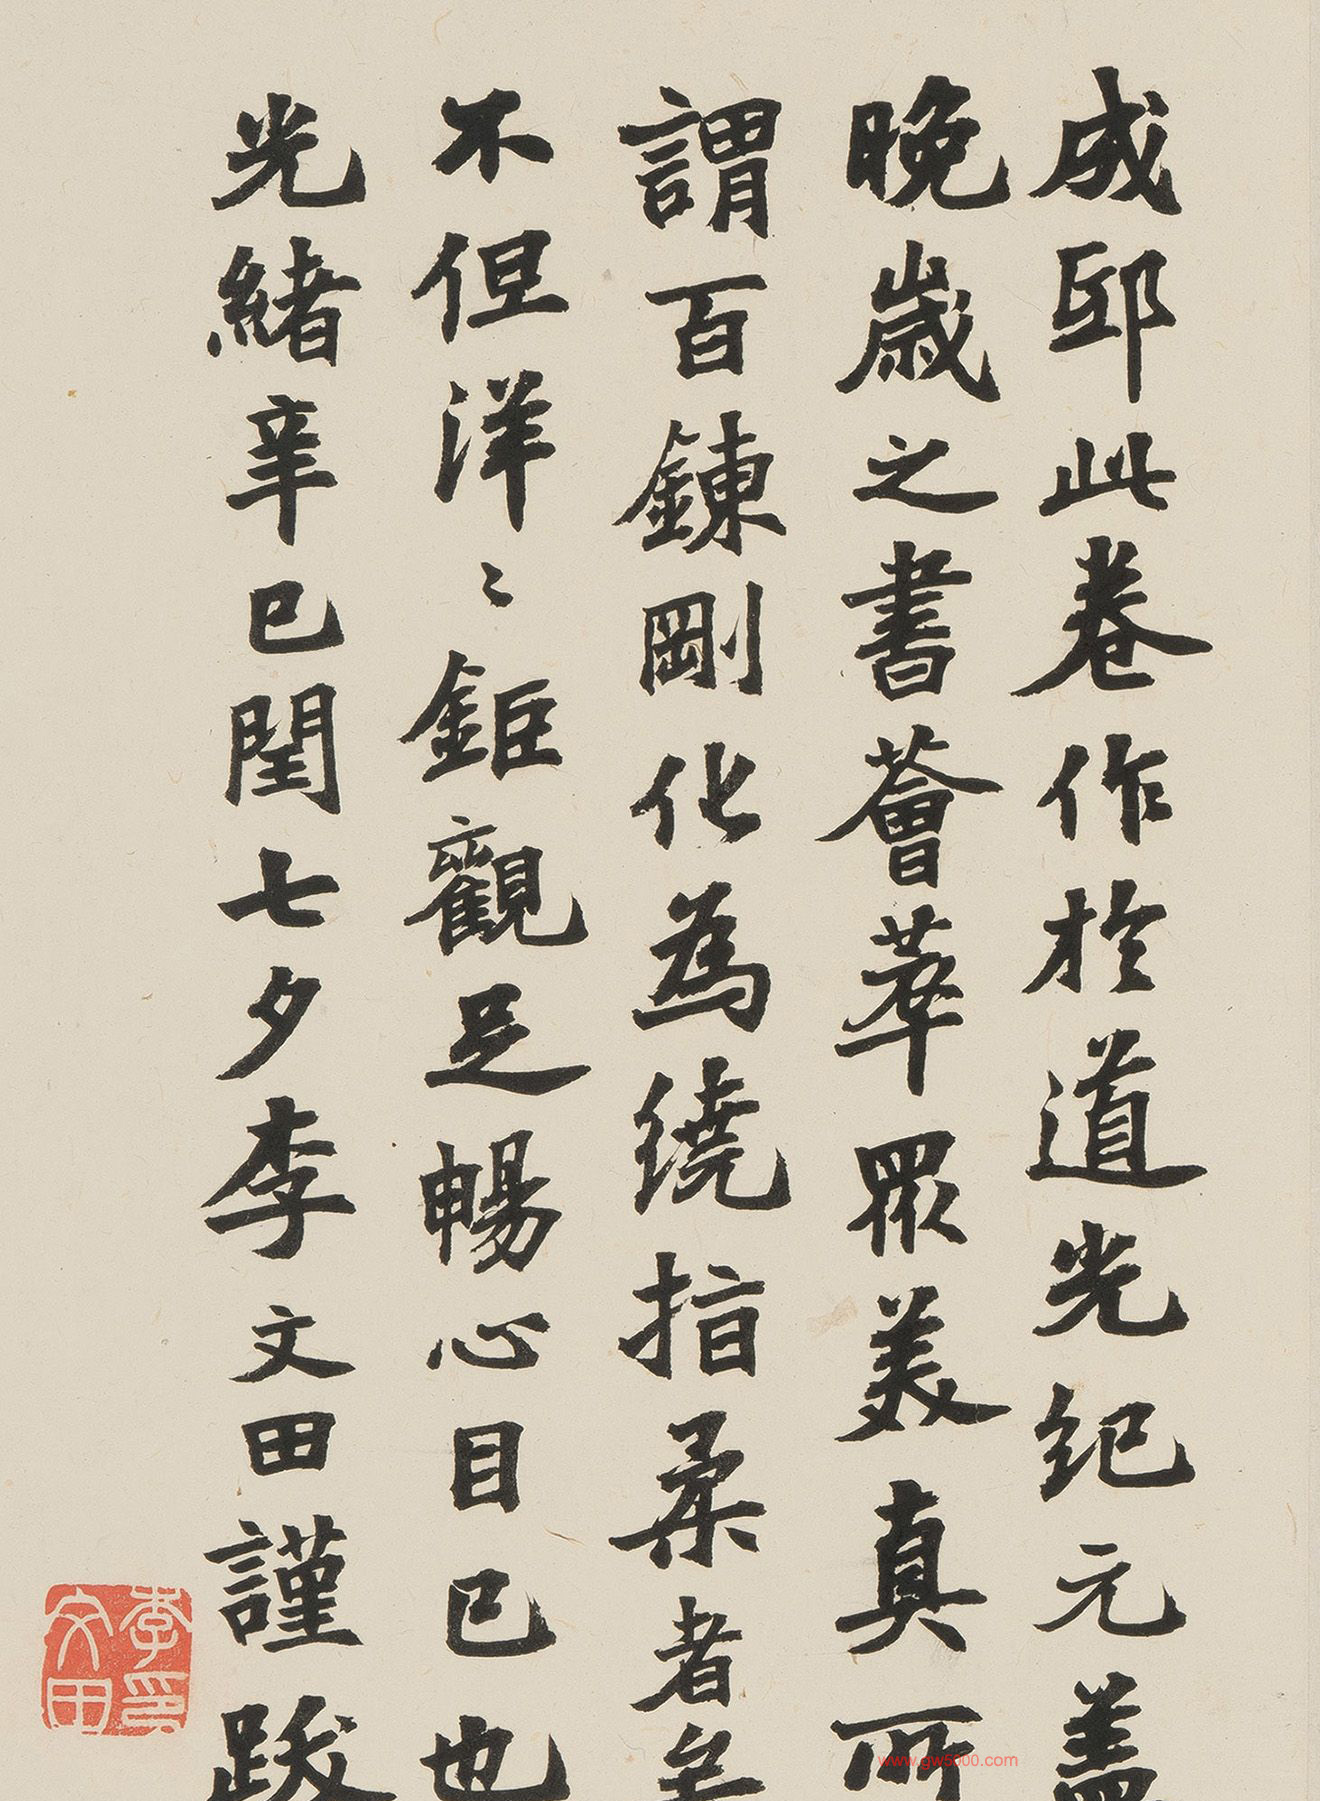 成邸此卷作於道光纪元盖
晚歲之書薈萃眾美真所
謂百鍊剛化為繞指柔者矣
不但洋〻鉅觀足暢心目已也
光緒辛巳閏七夕李文田謹跋
李文田印
www.gw5000.com